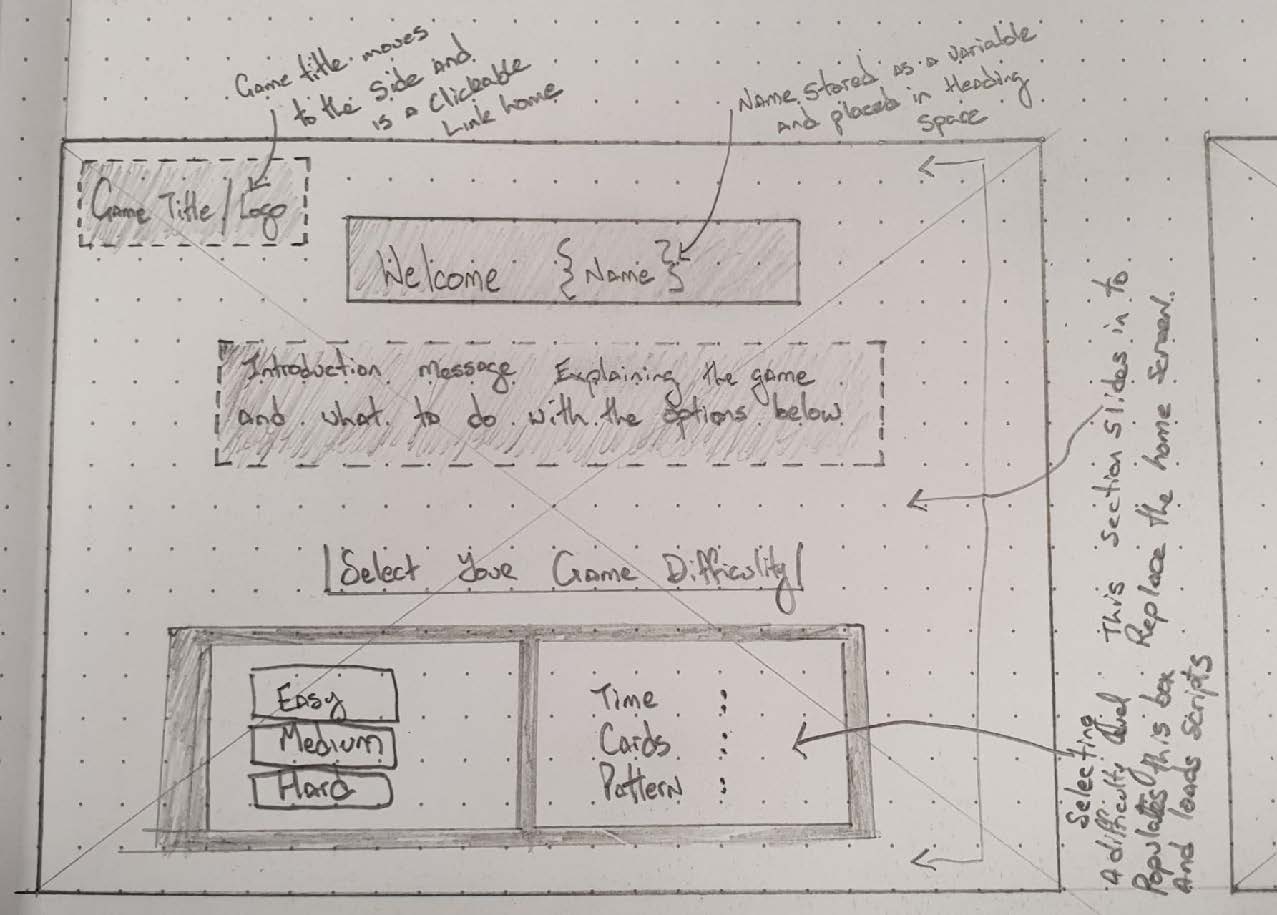 Game title moves
to the side and
is a Clickable
Link home
Name stored as a variable
and placed in Heading
space
Game Title / Logo
Welcome {Name}
Introduction message Explaining the game
and what to do with the options below
Select Your Game Difficulity
Easy
Medium
Hard
Time :
Cards :
Pattern :
This section slides in to
Replace the home screen.
Selecting
A difficulty level
Populates this box
And loads scripts